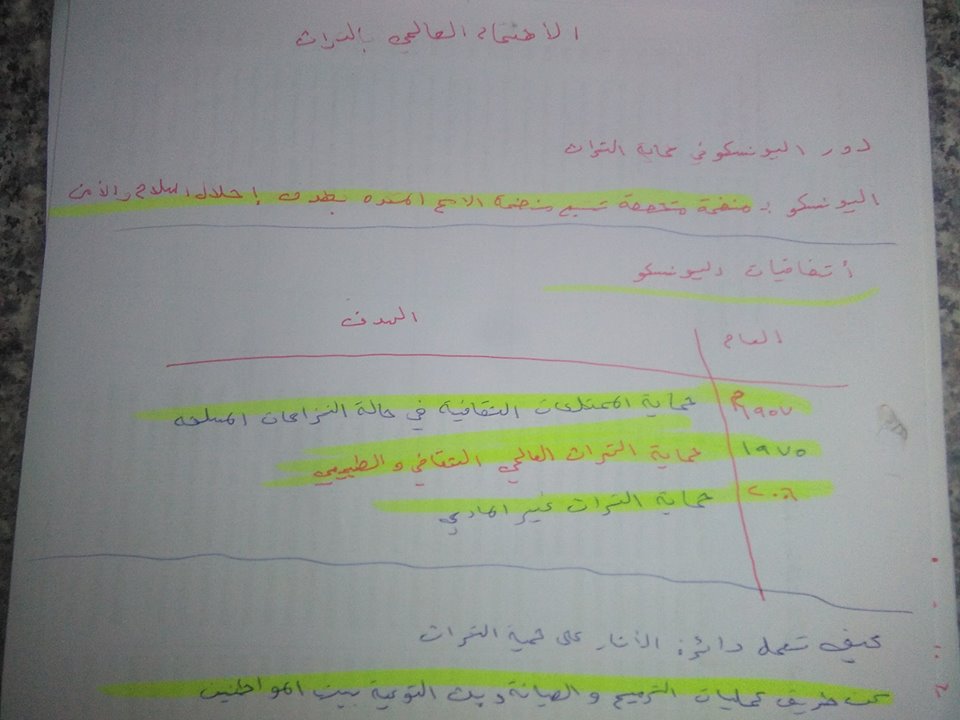 الاهتمام العالمي بالتراث
دور اليونسكو في حماية التراث
اليونسكو : منضمة متخصصة تتبع منضمة الامم المتحده بهدف إحلال السلام والأمن
أتفاقيات اليونسكو
العام الهدف
١٩٥٧م حماية الممتلكات الثقافية في حالة النزاعات المسلحه
١٩٧٥ حماية التراث العالمي الثقافي و الطبيعي
٢٠٠٦ حماية التراث غير المادي
كيف تعمل دائرة الأثار على حمية التراث
عن طريق عمليات الترميم و الصيانة وبث التوعية بين المواطنين